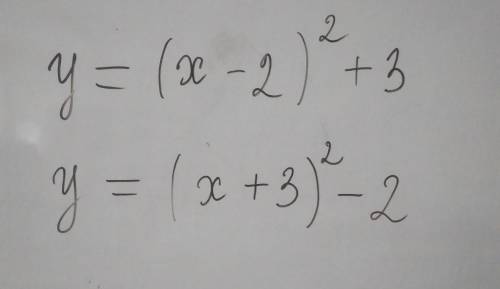 y = (x - 2)² + 3
y = (x + 3)² - 2